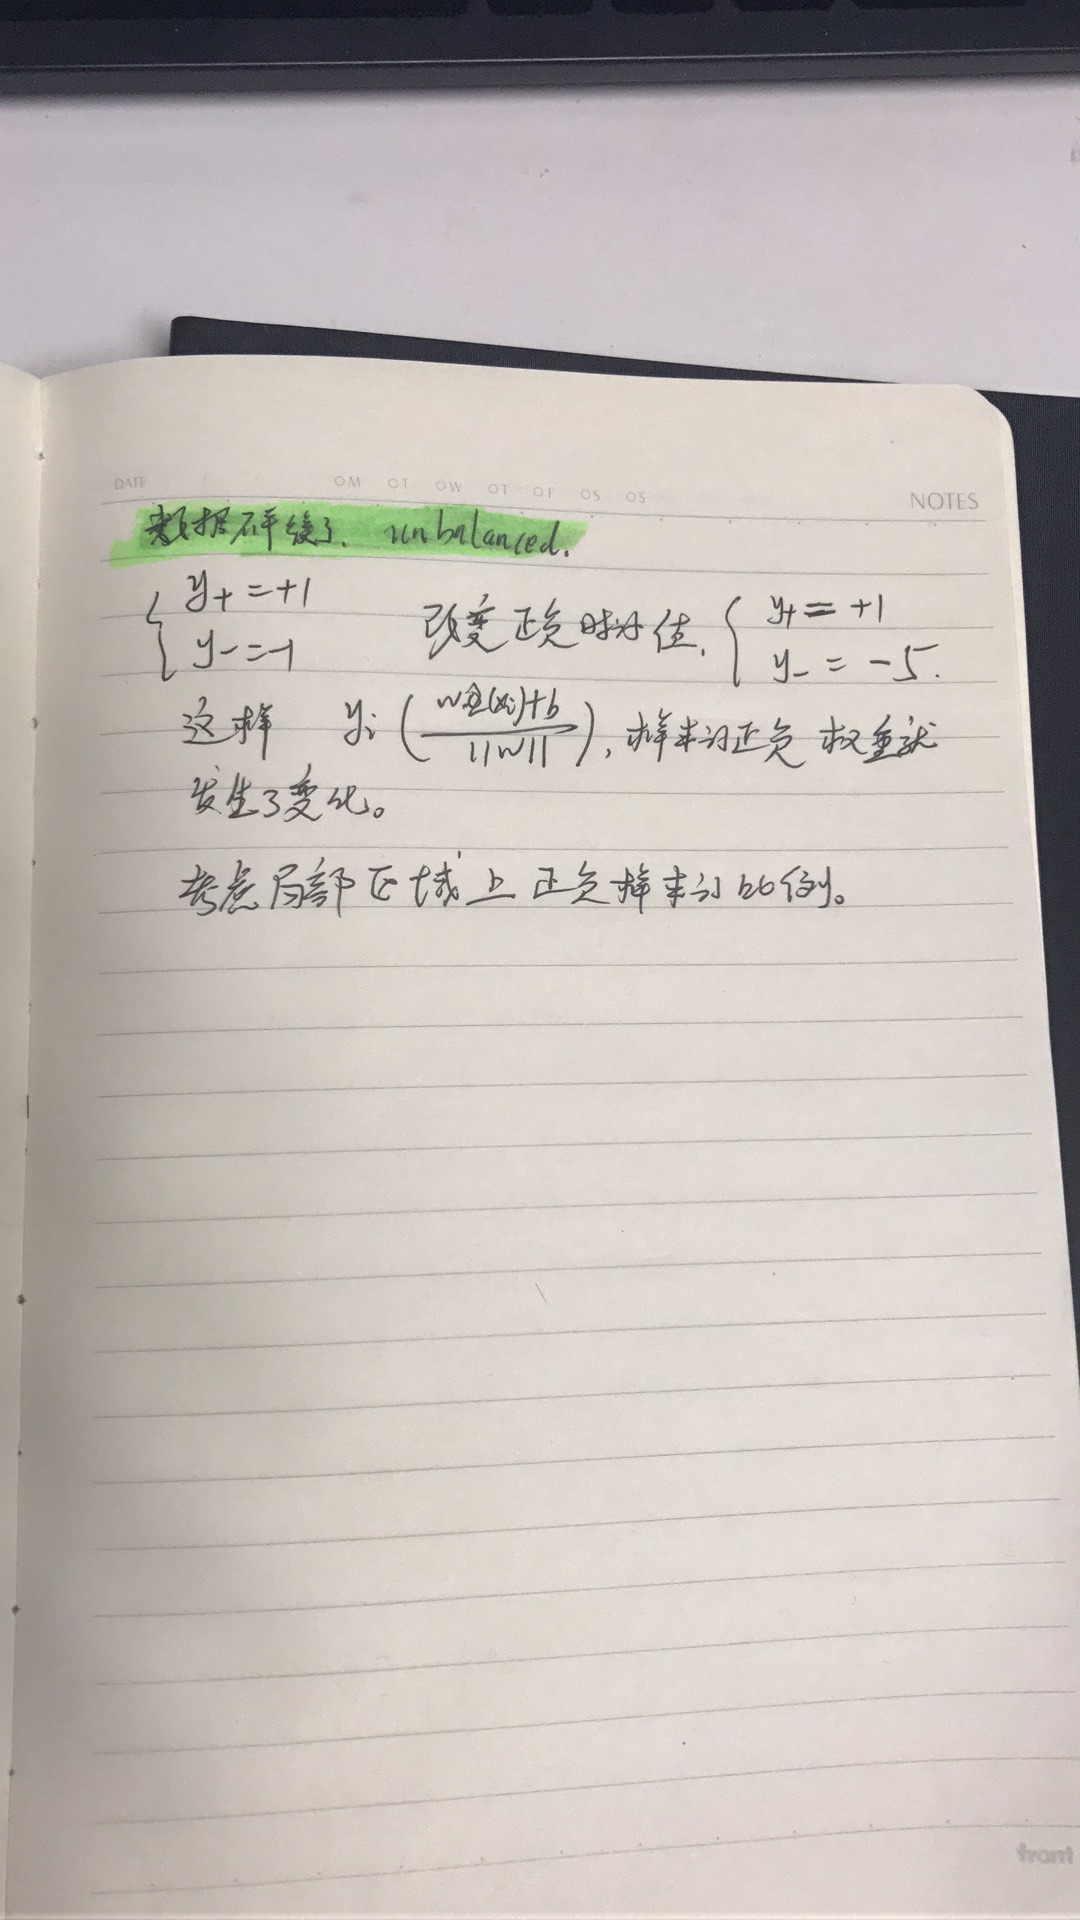 DATE / / OM OT OW OT OF OS OS NOTES
数据不平衡了. unbalanced.
{ y+ = +1 y- = -1 改变正负时的值. { y+ = +1 y- = -5.
这样 yi ( wΦ(xi)+b / ||w|| ), 样本的正负权重就
发生了变化。
考虑局部区域上正负样本的比例。
front